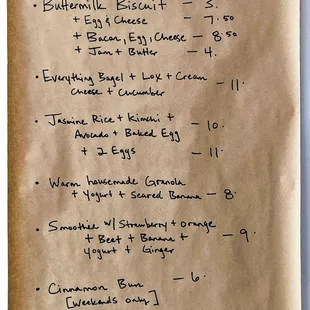 • Buttermilk Biscuit — 3.
+ Egg & Cheese — 7.50
+ Bacon, Egg, Cheese — 8.50
+ Jam + Butter — 4.
• Everything Bagel + Lox + Cream — 11.
Cheese + Cucumber
• Jasmine Rice + Kimchi +
Avocado + Baked Egg — 10.
+ 2 Eggs — 11.
• Warm housemade Granola
+ Yogurt + Seared Banana — 8.
• Smoothie w/ Strawberry + orange
+ Beet + Banana + — 9.
Yogurt + Ginger
• Cinnamon Bun — 6.
[Weekends only]